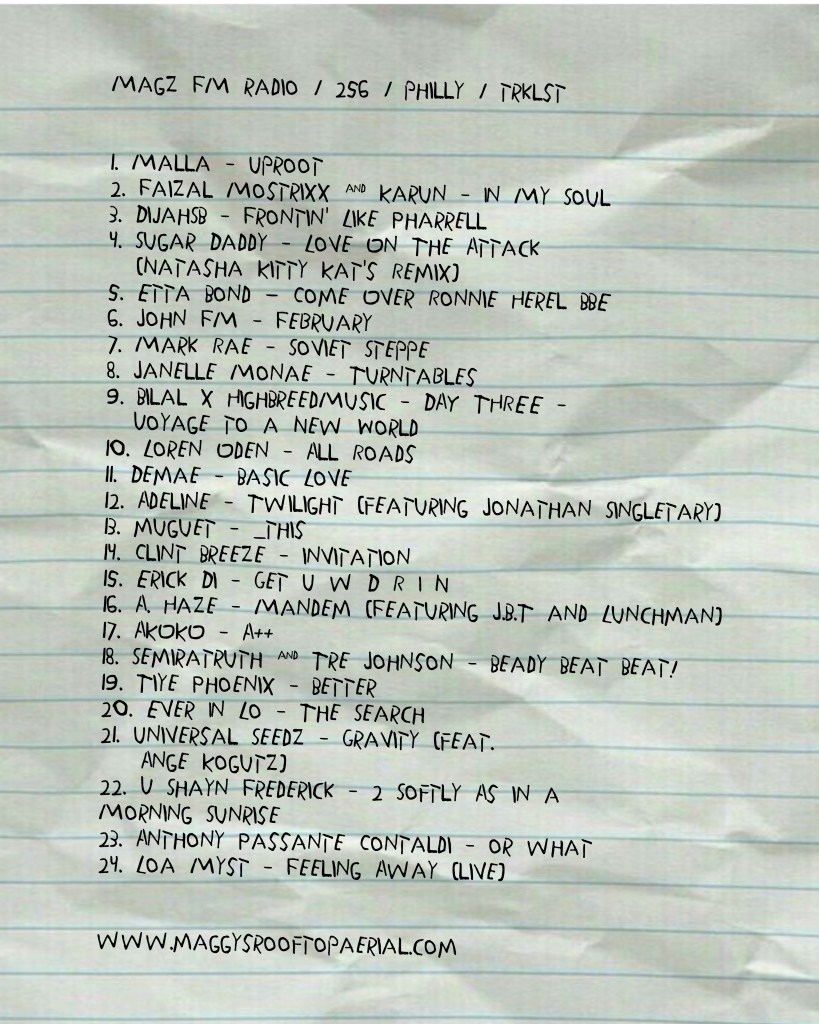 MAGZ FM RADIO / 256 / PHILLY / TRKLST
1. MALLA - UPROOT
2. FAIZAL MOSTRIXX AND KARUN - IN MY SOUL
3. DIJAHSB - FRONTIN' LIKE PHARRELL
4. SUGAR DADDY - LOVE ON THE ATTACK
(NATASHA KITTY KAT'S REMIX)
5. ETTA BOND - COME OVER RONNIE HEREL BBE
6. JOHN FM - FEBRUARY
7. MARK RAE - SOVIET STEPPE
8. JANELLE MONAE - TURNTABLES
9. BILAL X HIGHBREEDMUSIC - DAY THREE -
VOYAGE TO A NEW WORLD
10. LOREN ODEN - ALL ROADS
11. DEMAE - BASIC LOVE
12. ADELINE - TWILIGHT (FEATURING JONATHAN SINGLETARY)
13. MUGUET - _THIS
14. CLINT BREEZE - INVITATION
15. ERICK DI - GET U W D R I N
16. A. HAZE - MANDEM (FEATURING J.B.T AND LUNCHMAN)
17. AKOKO - A++
18. SEMIRATRUTH AND TRE JOHNSON - BEADY BEAT BEAT!
19. TIYE PHOENIX - BETTER
20. EVER IN LO - THE SEARCH
21. UNIVERSAL SEEDZ - GRAVITY (FEAT.
ANGE KOGUTZ)
22. U SHAYN FREDERICK - 2 SOFTLY AS IN A
MORNING SUNRISE
23. ANTHONY PASSANTE CONTALDI - OR WHAT
24. LOA MYST - FEELING AWAY (LIVE)
WWW.MAGGYSROOFTOPAERIAL.COM